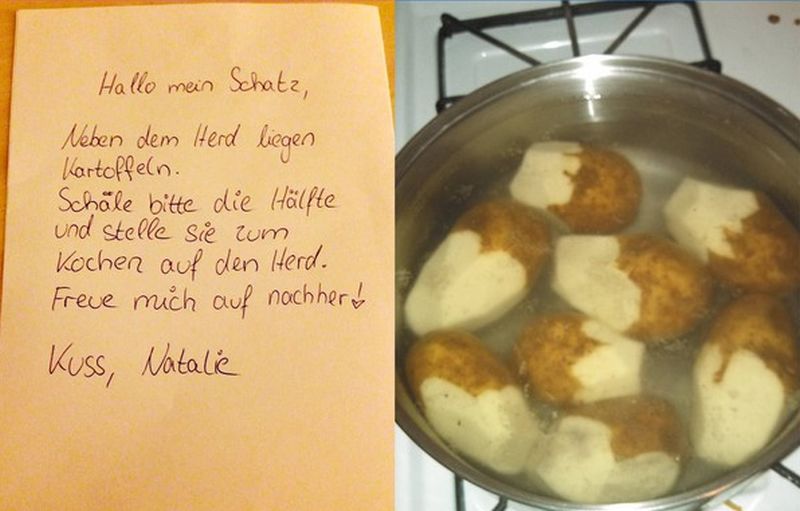 Hallo mein Schatz,
Neben dem Herd liegen
Kartoffeln.
Schäle bitte die Hälfte
und stelle sie zum
Kochen auf den Herd.
Freue mich auf nachher!
Kuss, Natalie